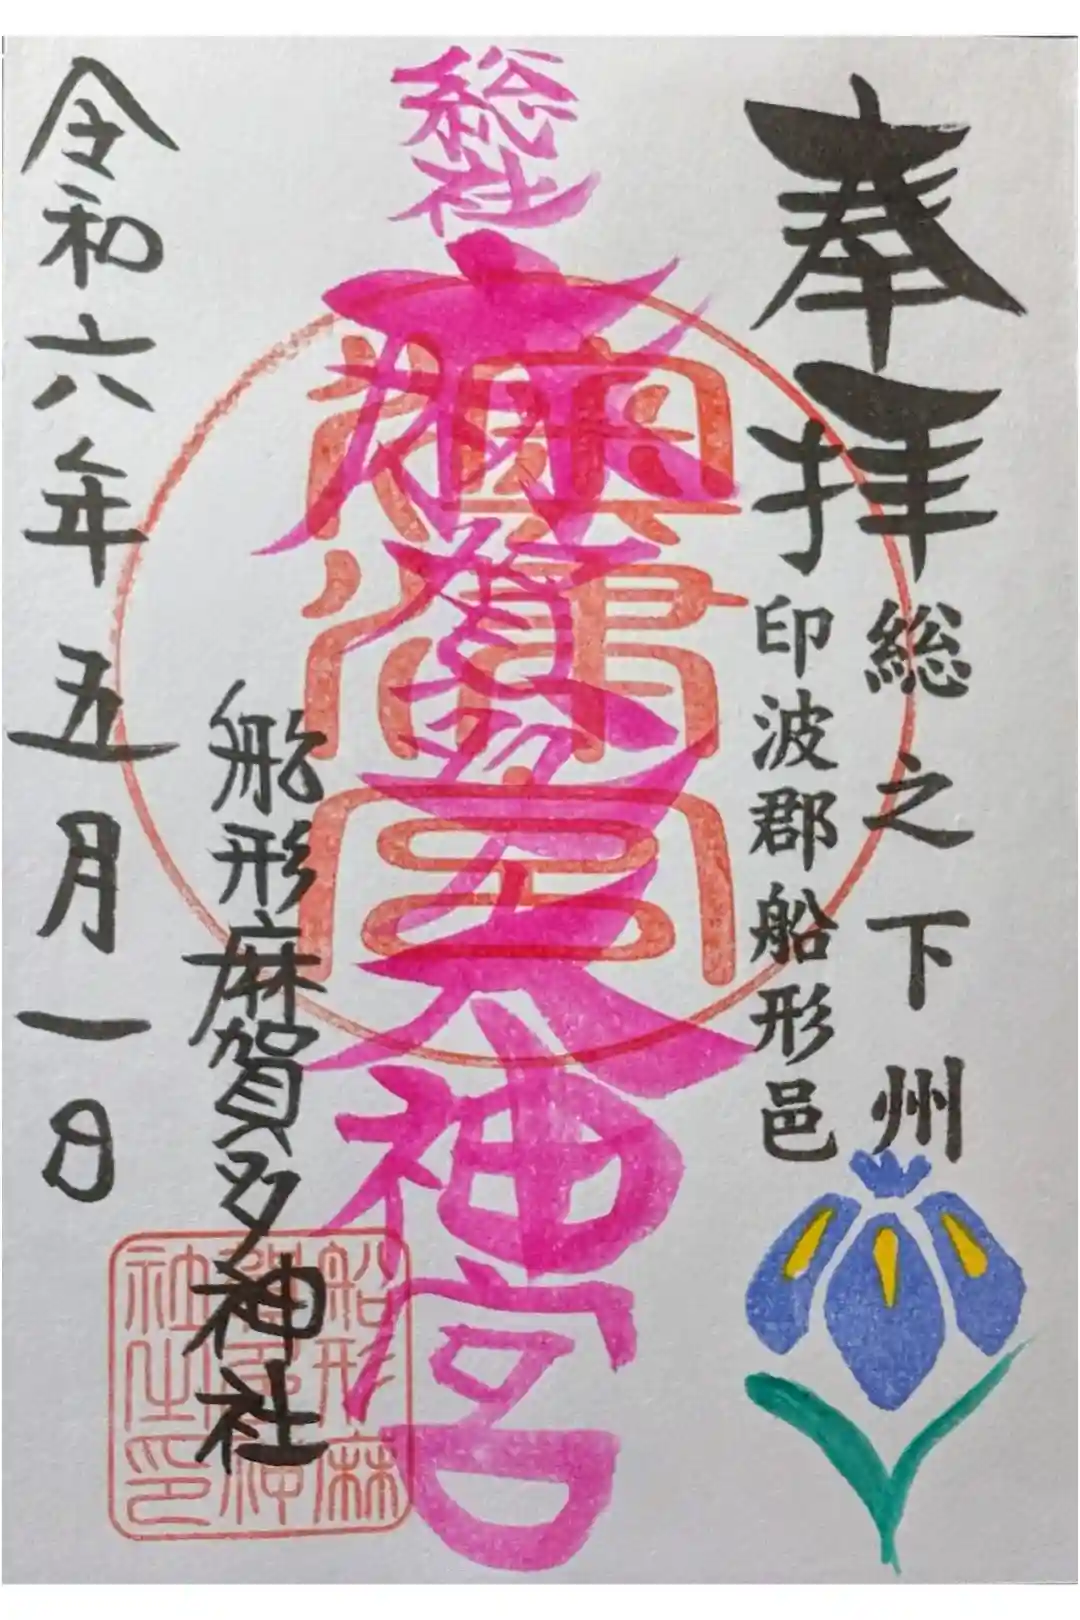 奉拝
総之下州
印波郡船形邑
総社
麻賀多大神宮
船形麻賀多神社
令和六年五月一日
船形麻賀多神社之印